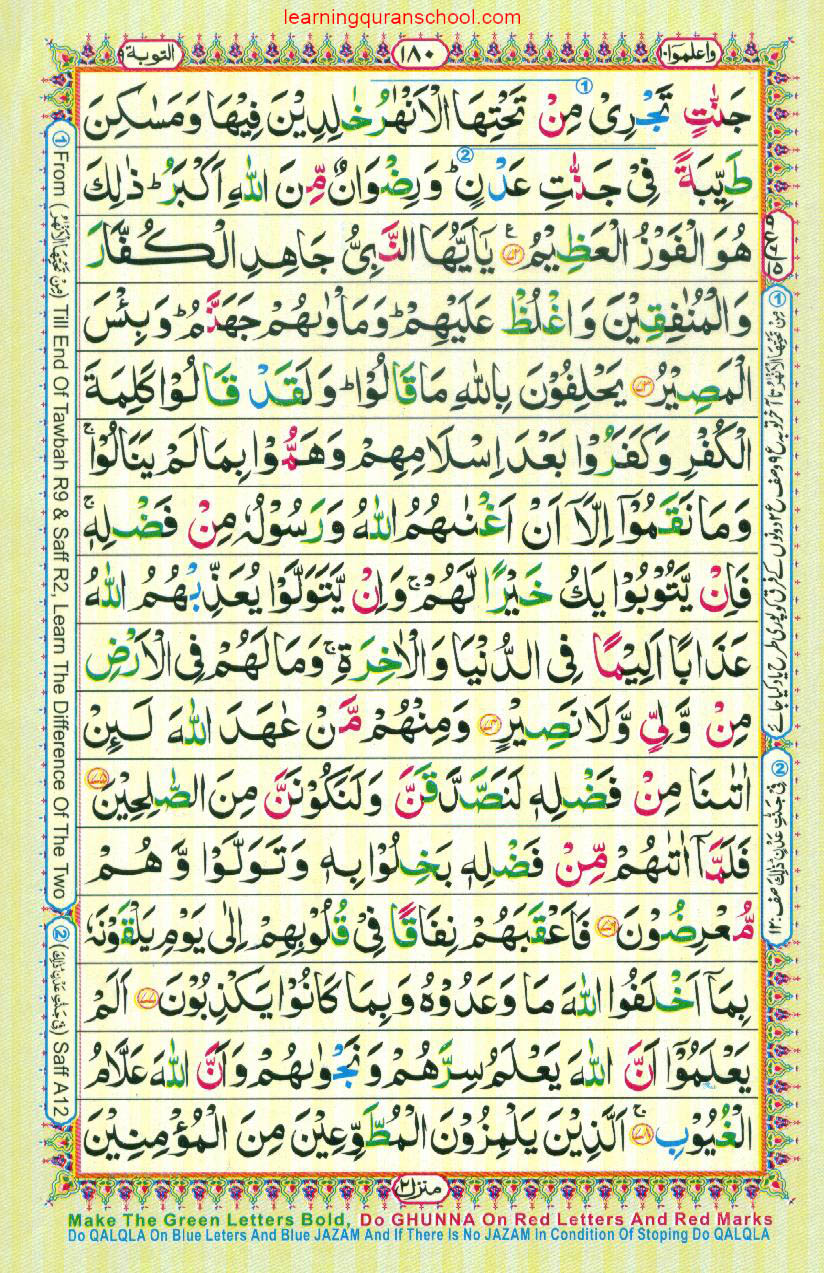 learningquranschool.com
واعلموا۱۰
۱۸۰
التوبة۹
جَنّٰتٍ تَجْرِیْ مِنْ تَحْتِهَا الْاَنْهٰرُ خٰلِدِیْنَ فِیْهَا وَمَسٰكِنَ
طَیِّبَةً فِیْ جَنّٰتِ عَدْنٍ ؕ وَرِضْوَانٌ مِّنَ اللّٰهِ اَكْبَرُ ؕ ذٰلِكَ
هُوَ الْفَوْزُ الْعَظِیْمُ ﴿۷۲﴾ یٰۤاَیُّهَا النَّبِیُّ جَاهِدِ الْكُفَّارَ
وَالْمُنٰفِقِیْنَ وَاغْلُظْ عَلَیْهِمْ ؕ وَمَاْوٰىهُمْ جَهَنَّمُ ؕ وَبِئْسَ
الْمَصِیْرُ ﴿۷۳﴾ یَحْلِفُوْنَ بِاللّٰهِ مَا قَالُوْا ؕ وَلَقَدْ قَالُوْا كَلِمَةَ
الْكُفْرِ وَكَفَرُوْا بَعْدَ اِسْلَامِهِمْ وَهَمُّوْا بِمَا لَمْ یَنَالُوْا ۚ
وَمَا نَقَمُوْۤا اِلَّاۤ اَنْ اَغْنٰىهُمُ اللّٰهُ وَرَسُوْلُهٗ مِنْ فَضْلِهٖ ۚ
فَاِنْ یَّتُوْبُوْا یَكُ خَیْرًا لَّهُمْ ۚ وَاِنْ یَّتَوَلَّوْا یُعَذِّبْهُمُ اللّٰهُ
عَذَابًا اَلِیْمًا فِی الدُّنْیَا وَالْاٰخِرَةِ ۚ وَمَا لَهُمْ فِی الْاَرْضِ
مِنْ وَّلِیٍّ وَّلَا نَصِیْرٍ ﴿۷۴﴾ وَمِنْهُمْ مَّنْ عٰهَدَ اللّٰهَ لَىِٕنْ
اٰتٰىنَا مِنْ فَضْلِهٖ لَنَصَّدَّقَنَّ وَلَنَكُوْنَنَّ مِنَ الصّٰلِحِیْنَ ﴿۷۵﴾
فَلَمَّاۤ اٰتٰىهُمْ مِّنْ فَضْلِهٖ بَخِلُوْا بِهٖ وَتَوَلَّوْا وَّهُمْ
مُّعْرِضُوْنَ ﴿۷۶﴾ فَاَعْقَبَهُمْ نِفَاقًا فِیْ قُلُوْبِهِمْ اِلٰی یَوْمِ یَلْقَوْنَهٗ
بِمَاۤ اَخْلَفُوا اللّٰهَ مَا وَعَدُوْهُ وَبِمَا كَانُوْا یَكْذِبُوْنَ ﴿۷۷﴾ اَلَمْ
یَعْلَمُوْۤا اَنَّ اللّٰهَ یَعْلَمُ سِرَّهُمْ وَنَجْوٰىهُمْ وَاَنَّ اللّٰهَ عَلَّامُ
الْغُیُوْبِ ﴿۷۸﴾ اَلَّذِیْنَ یَلْمِزُوْنَ الْمُطَّوِّعِیْنَ مِنَ الْمُؤْمِنِیْنَ
منزل۲
① From (مِنْ تَحْتِهَا الْاَنْهٰرُ) Till End Of Tawbah R9 & Saff R2, Learn The Difference Of The Two
② (فِیْ جَنّٰتِ عَدْنٍ ذٰلِكَ) Saff A12
① مِنْ تَحْتِهَا الْاَنْهٰرُ تا آخر توبہ ع۹ و صف ع۲ دونوں کے فرق کو پوری طرح یاد کیا جائے
② فِیْ جَنّٰتِ عَدْنٍ ذٰلِكَ صف ۱۲
Make The Green Letters Bold, Do GHUNNA On Red Letters And Red Marks
Do QALQLA On Blue Leters And Blue JAZAM And If There Is No JAZAM In Condition Of Stoping Do QALQLA